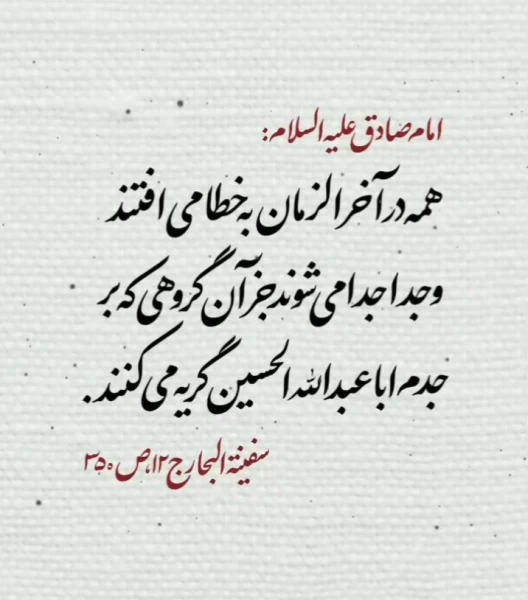 امام صادق علیه السلام:
همه در آخرالزمان به خطا می افتند
و جدا جدا می شوند جز آن گروهی که بر
جدم اباعبدالله الحسین گریه می کنند.
سفینة البحار ج۱۲، ص۳۵۰